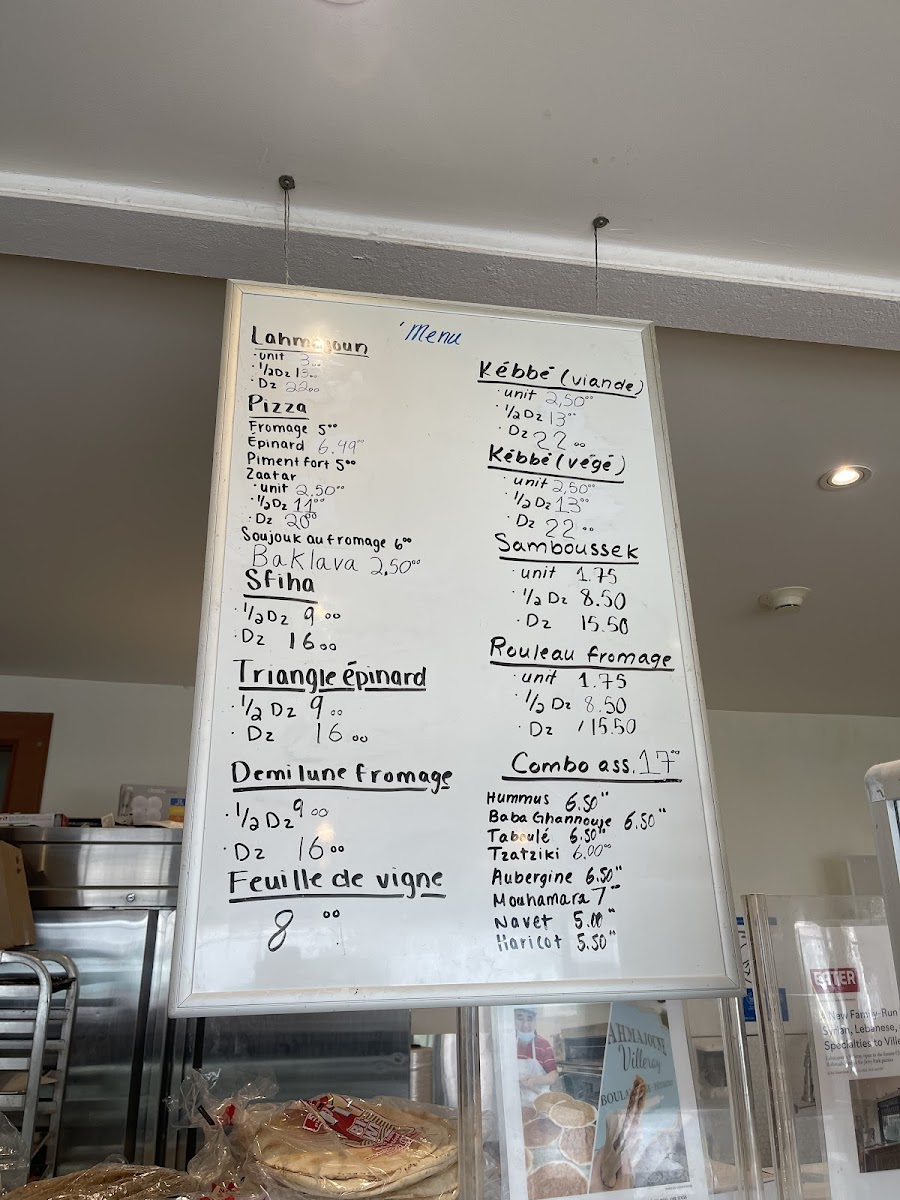 Menu
Lahmajoun
· unit 3.00
· 1/2 Dz 13.00
· Dz 22.00
Pizza
Fromage 5.00
Épinard 6.49
Piment fort 5.00
Zaatar
· unit 2.50
· 1/2 Dz 11.00
· Dz 20.00
Soujouk au fromage 6.00
Baklava 2,50
Sfiha
· 1/2 Dz 9.00
· Dz 16.00
Triangle épinard
· 1/2 Dz 9.00
· Dz 16.00
Demi lune fromage
· 1/2 Dz 9.00
· Dz 16.00
Feuille de vigne
8.00
Kébbé (viande)
· unit 2,50
· 1/2 Dz 13.00
· Dz 22.00
Kébbé (végé)
· unit 2,50
· 1/2 Dz 13.00
· Dz 22.00
Samboussek
· unit 1.75
· 1/2 Dz 8.50
· Dz 15.50
Rouleau fromage
· unit 1.75
· 1/2 Dz 8.50
· Dz 15.50
Combo ass. 17.00
Hummus 6.50
Baba Ghannouje 6.50
Taboulé 6.50
Tzatziki 6.00
Aubergine 6.50
Mouhamara 7.00
Navet 5.00
Haricot 5.50
AHMAJOUN
Villeray
BOULA
EATER
New Family-Run
Syrian, Lebanese,
Specialties to Ville